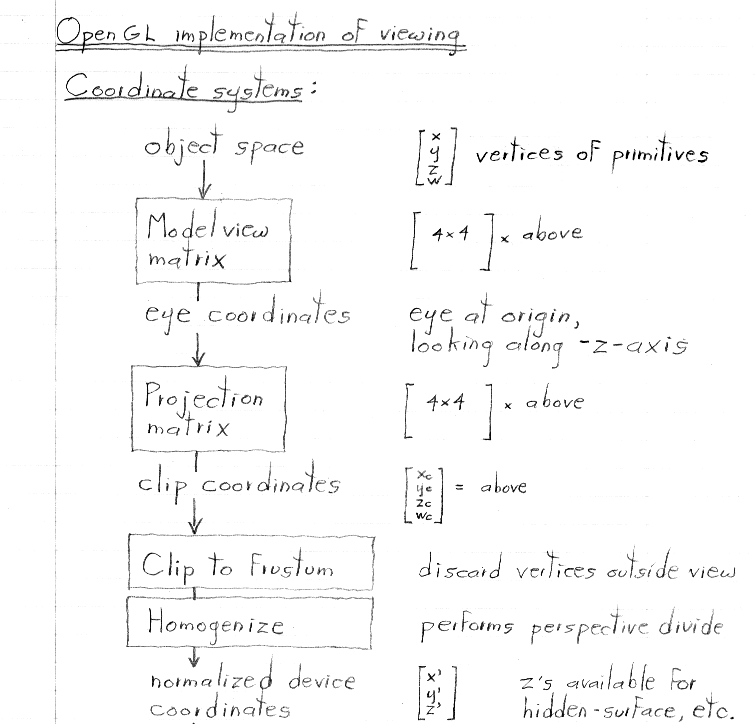 OpenGL implementation of viewing
Coordinate systems:
object space
[x y z w] vertices of primitives
Modelview
matrix
[4×4] × above
eye coordinates
eye at origin,
looking along -z-axis
Projection
matrix
[4×4] × above
clip coordinates
[xc yc zc wc] = above
Clip to Frustum
discard vertices outside view
Homogenize
performs perspective divide
normalized device
coordinates
[x' y' z']
z's available for
hidden-surface, etc.